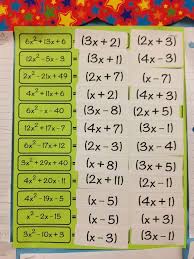 6x² + 13x + 6 = (3x + 2) (2x + 3)
12x² - 5x - 3 = (3x + 1) (4x - 3)
2x² - 21x + 49 = (2x - 7) (x - 7)
4x² + 11x + 6 = (4x + 3) (x + 2)
6x² - x - 40 = (3x - 8) (2x + 5)
12x² + 17x - 7 = (4x + 7) (3x - 1)
6x² - 17x + 12 = (2x - 3) (3x - 4)
3x² + 29x + 40 = (x + 8) (3x + 5)
4x² + 20x - 11 = (2x + 11) (2x - 1)
4x² - 19x - 5 = (x - 5) (4x + 1)
x² - 2x - 15 = (x - 5) (x + 3)
3x² - 10x + 3 = (x - 3) (3x - 1)